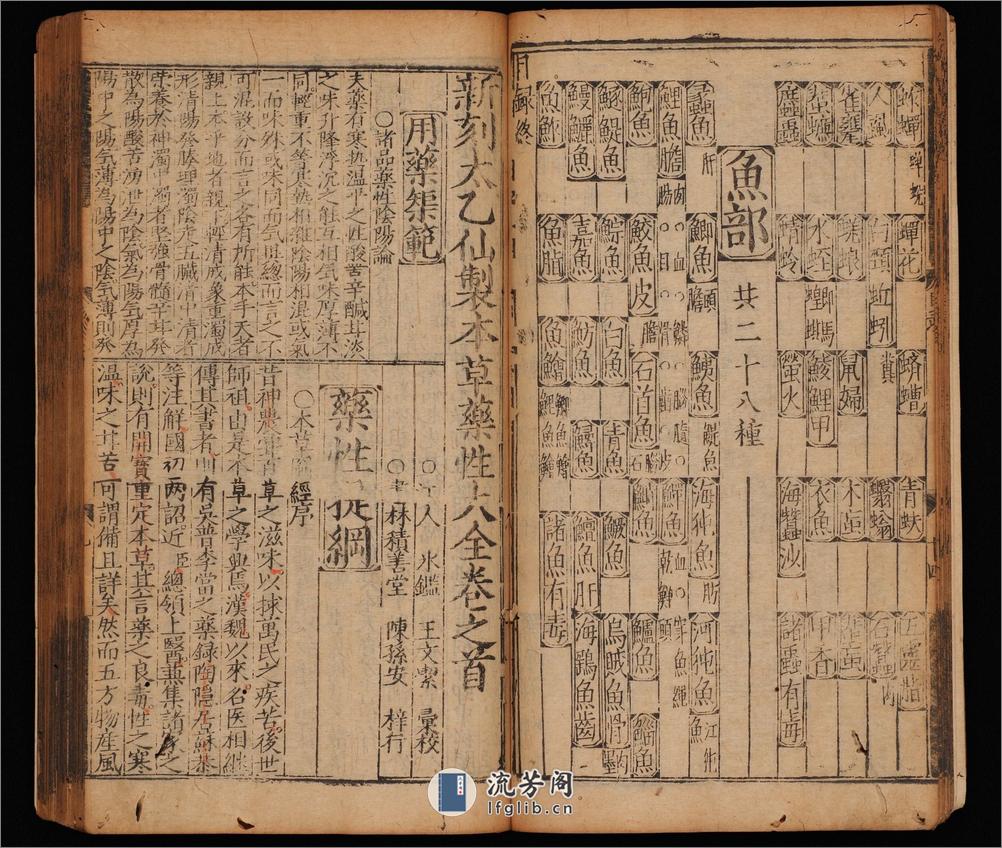 蟬花 蠐螬 青蚨
白頸蚯蚓 糞 蠮螉 石蠶肉
雀甕 蜣蜋 鼠婦 木虻
水蛭 鯪鯉甲 衣魚 甲香
䗪蟲 蜻蛉 螢火 海蠶沙 諸蟲有毒
魚部 共二十八種
蠡魚肝 鯽魚 頭 膽 鮧魚 鯷魚 海㹠魚肪 河㹠魚
鯉魚膽 肉 骨 血 目 鱗 腦 乾鱓
鮑魚 鮫魚皮 石首魚 鱸魚
鯮魚 白魚 青魚 鱖魚 烏賊魚骨 墨
鰻鱺魚 嘉魚 魴魚 海鷂魚齒
魚鮓 魚脂 魚鱠 諸魚有毒
目錄終
新刻太乙仙製本草藥性大全卷之首
用藥榘範
○諸品藥性陰陽論
夫藥有寒熱溫平之性酸苦辛鹹甘淡
之味升降浮沉之能互相氣味厚薄不
同輕重不等寒熱相雜陰陽相混或氣
一而味殊或味同而氣異總而言之不
可混說分而言之各有所能本乎天者
親上本乎地者親下輕清成象重濁成
形清陽發腠理濁陰走五臟清中清者
榮養於神濁中濁者堅強骨髓辛甘發
散為陽酸苦湧泄為陰氣為陽氣厚為
陽中之陽氣薄為陽中之陰氣薄則發
人 氷鑑 王文潔 彙校
○書林積善堂 陳孫安 梓行
藥性提綱
○本草 經序
昔神農嘗百草之滋味以拯萬民之疾苦後世
師祖由是本草之學興焉漢魏以來名医相繼
傳其書者則有吳普李當之藥録陶隱居蘇恭
等注解國初兩詔近臣總領上醫兼集諸家之
說則有開寶重定本草其言藥之良毒性之寒
溫味之甘苦可謂備且詳矣然而五方物產風
流芳阁
lfglib.cn